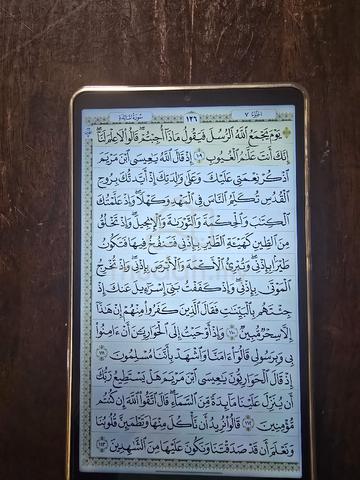 الجزء ٧ ١٢٦ سورة المائدة
يَوْمَ يَجْمَعُ اللَّهُ الرُّسُلَ فَيَقُولُ مَاذَا أُجِبْتُمْ قَالُوا لَا عِلْمَ لَنَا
إِنَّكَ أَنتَ عَلَّامُ الْغُيُوبِ ١٠٩ إِذْ قَالَ اللَّهُ يَاعِيسَى ابْنَ مَرْيَمَ
اذْكُرْ نِعْمَتِي عَلَيْكَ وَعَلَىٰ وَالِدَتِكَ إِذْ أَيَّدتُّكَ بِرُوحِ
الْقُدُسِ تُكَلِّمُ النَّاسَ فِي الْمَهْدِ وَكَهْلًا وَإِذْ عَلَّمْتُكَ
الْكِتَابَ وَالْحِكْمَةَ وَالتَّوْرَاةَ وَالْإِنجِيلَ وَإِذْ تَخْلُقُ
مِنَ الطِّينِ كَهَيْئَةِ الطَّيْرِ بِإِذْنِي فَتَنفُخُ فِيهَا فَتَكُونُ
طَيْرًا بِإِذْنِي وَتُبْرِئُ الْأَكْمَهَ وَالْأَبْرَصَ بِإِذْنِي وَإِذْ تُخْرِجُ
الْمَوْتَىٰ بِإِذْنِي وَإِذْ كَفَفْتُ بَنِي إِسْرَائِيلَ عَنكَ إِذْ
جِئْتَهُم بِالْبَيِّنَاتِ فَقَالَ الَّذِينَ كَفَرُوا مِنْهُمْ إِنْ هَٰذَا
إِلَّا سِحْرٌ مُّبِينٌ ١١٠ وَإِذْ أَوْحَيْتُ إِلَى الْحَوَارِيِّينَ أَنْ آمِنُوا
بِي وَبِرَسُولِي قَالُوا آمَنَّا وَاشْهَدْ بِأَنَّنَا مُسْلِمُونَ ١١١
إِذْ قَالَ الْحَوَارِيُّونَ يَاعِيسَى ابْنَ مَرْيَمَ هَلْ يَسْتَطِيعُ رَبُّكَ
أَن يُنَزِّلَ عَلَيْنَا مَائِدَةً مِّنَ السَّمَاءِ قَالَ اتَّقُوا اللَّهَ إِن كُنتُم
مُّؤْمِنِينَ ١١٢ قَالُوا نُرِيدُ أَن نَّأْكُلَ مِنْهَا وَتَطْمَئِنَّ قُلُوبُنَا
وَنَعْلَمَ أَن قَدْ صَدَقْتَنَا وَنَكُونَ عَلَيْهَا مِنَ الشَّاهِدِينَ ١١٣